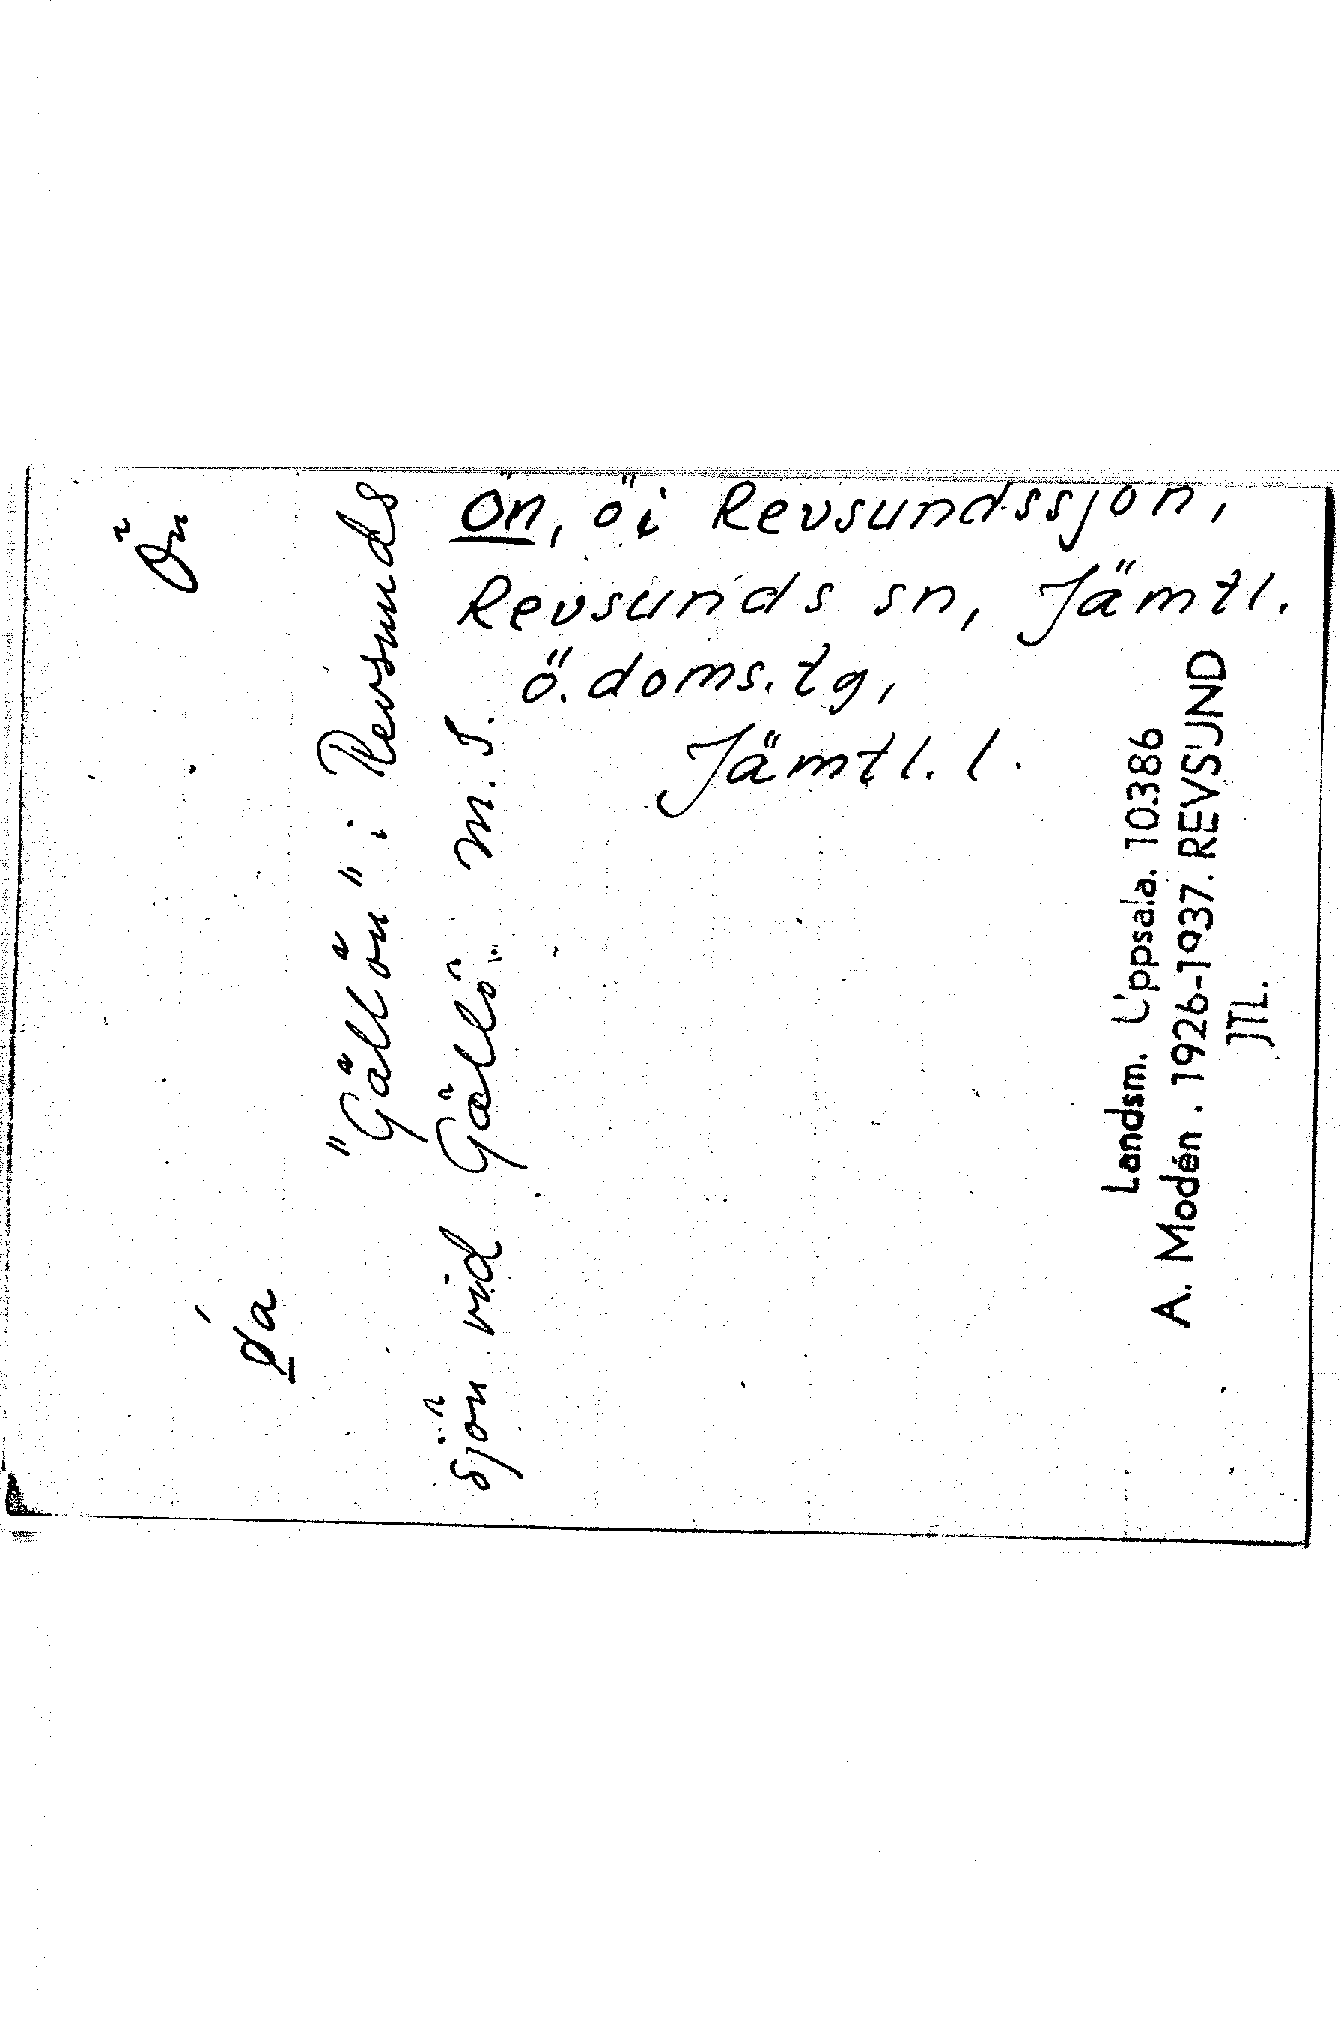 Ön, ö i Revsundssjön,
Revsunds sn, Jämtl.
ö. doms. tg,
Jämtl. l.
Ön
"Gällön" i Revsunds
sjön vid Gällö. M. S.
Landsm. Uppsala. 10386
A. Modén. 1926-1937. REVSUND
JTL.